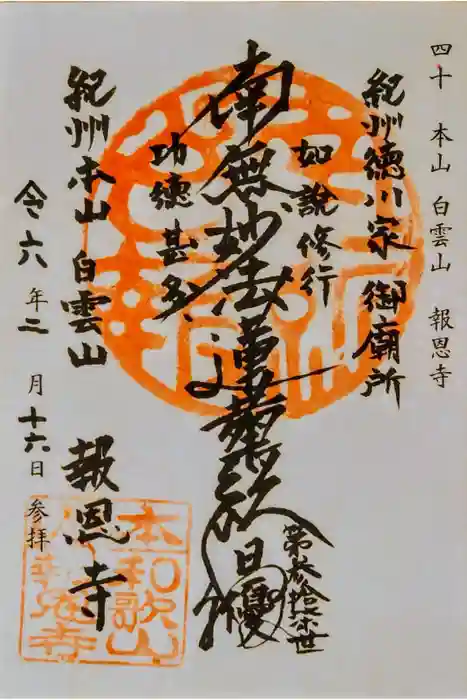 四十 本山 白雲山 報恩寺
紀州徳川家御廟所
如説修行
南無妙法蓮華経
日優
第参拾
世
功徳甚多
紀州本山 白雲山
報恩寺
令六年二月十六日 参拝
本
和歌山
報恩寺